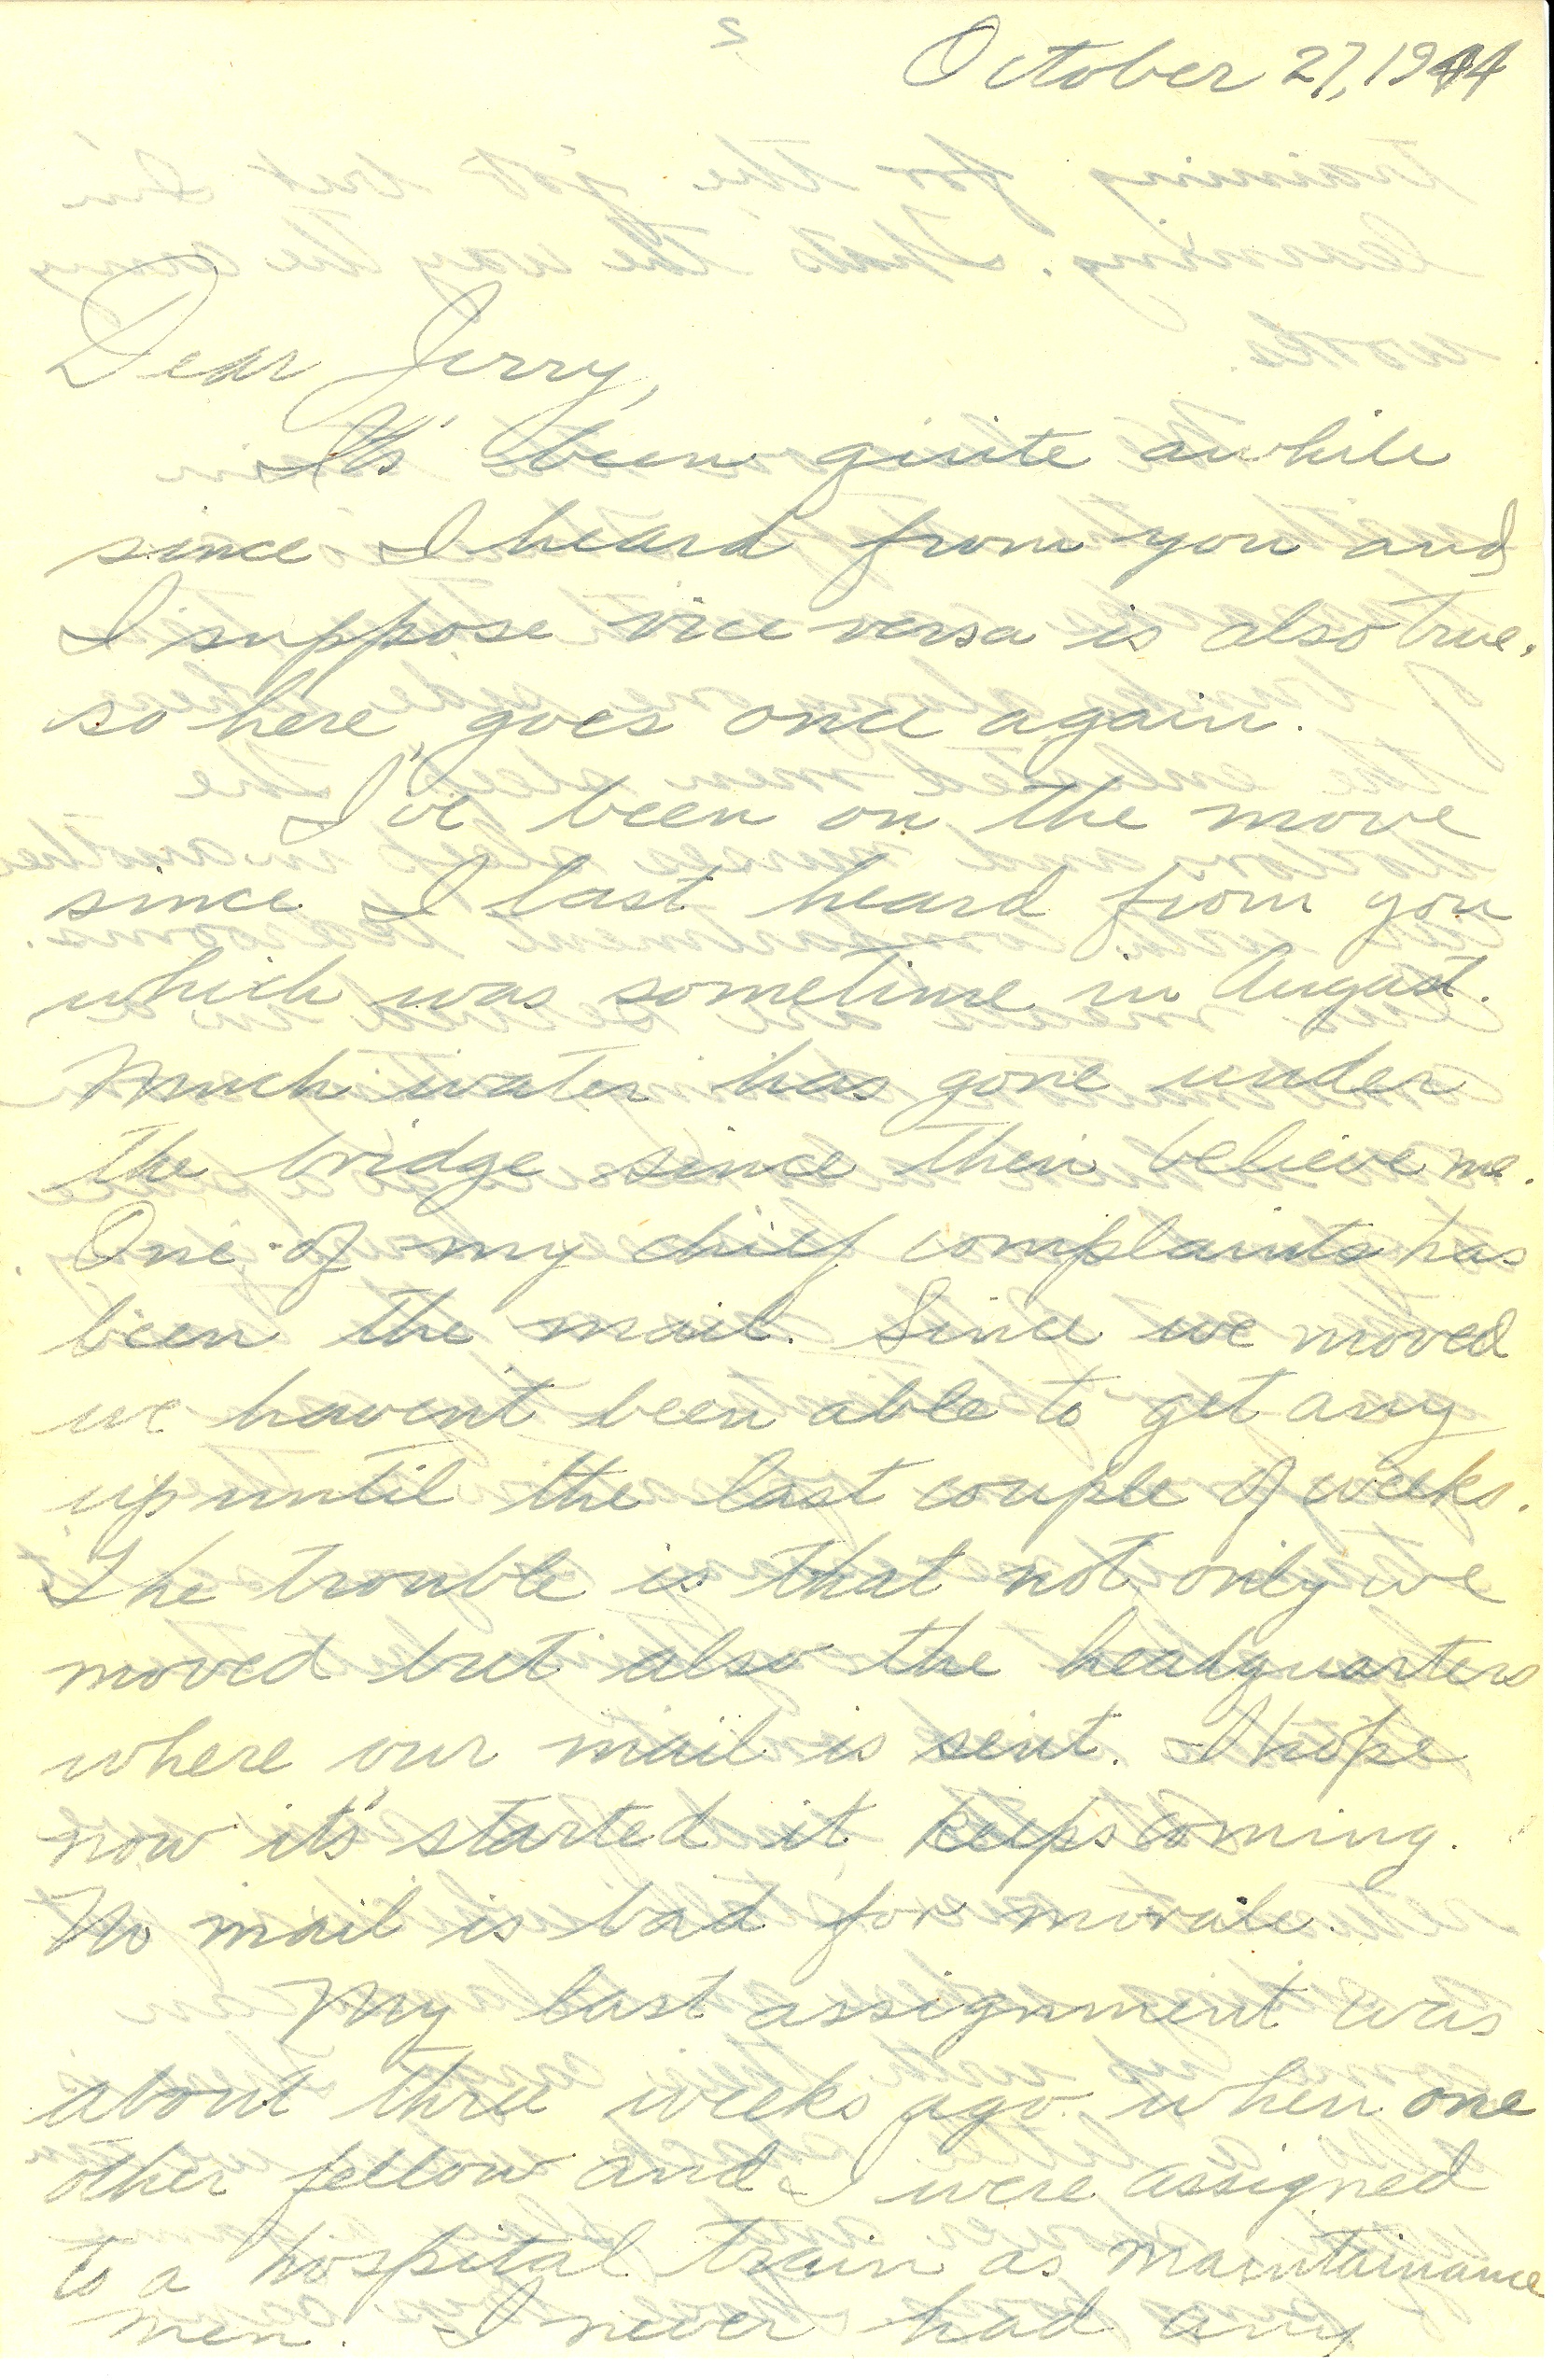 October 27, 1944
Dear Jerry,
It's been quite awhile
since I heard from you and
I suppose vice versa is also true,
so here goes once again.
I've been on the move
since I last heard from you
which was sometime in August.
Much water has gone under
the bridge since then believe me.
One of my chief complaints has
been the mail. Since we moved
we havent been able to get any
up until the last couple of weeks.
The trouble is that not only we
moved but also the headquarters
where our mail is sent. I hope
now it's started it keeps coming.
No mail is bad for morale.
My last assignment was
about three weeks ago when one
other fellow and I were assigned
to a hospital train as maintainance
men. I never had any